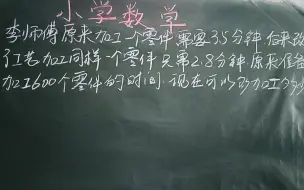 小学数学
李师傅原来加工一个零件需要35分钟后来改
了工艺加工同样一个零件只需2.8分钟原来准备
加工600个零件的时间.现在可以多加工多少